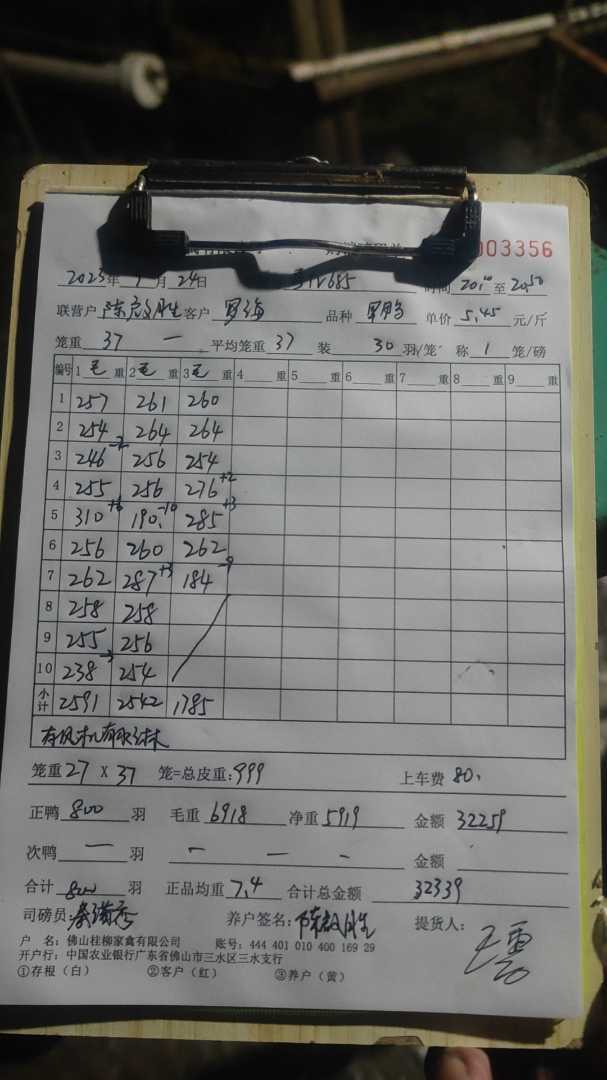 003356
2023年 月 24日 时间 20.10 至 20.50
联营户 陈启胜 客户 罗海 品种 单价 5.45 元/斤
笼重 37 一 平均笼重 37 装 30 羽/笼 称 1 笼/磅
编号 1 毛 重 2 毛 重 3 毛 重 4 重 5 重 6 重 7 重 8 重 9 重
1 257 261 260
2 254 264 264
3 246 -2 256 254
4 255 256 276 +2
5 310 +6 190 -10 285 +3
6 256 260 262
7 262 287 +3 184 -9
8 258 258
9 255 256
10 238 254
小计 2591 2542 1785
笼重 27 X 37 笼=总皮重: 999 上车费 80.
正鸭 800 羽 毛重 6918 净重 5919 金额 32259
次鸭 一 羽 - - - 金额
合计 800 羽 正品均重 7.4 合计总金额 32339
司磅员: 养户签名: 陈启胜 提货人:
户 名: 佛山桂柳家禽有限公司 账号: 444 401 010 400 169 29
开户行: 中国农业银行广东省佛山市三水区三水支行
①存根(白) ②客户(红) ③养户(黄)